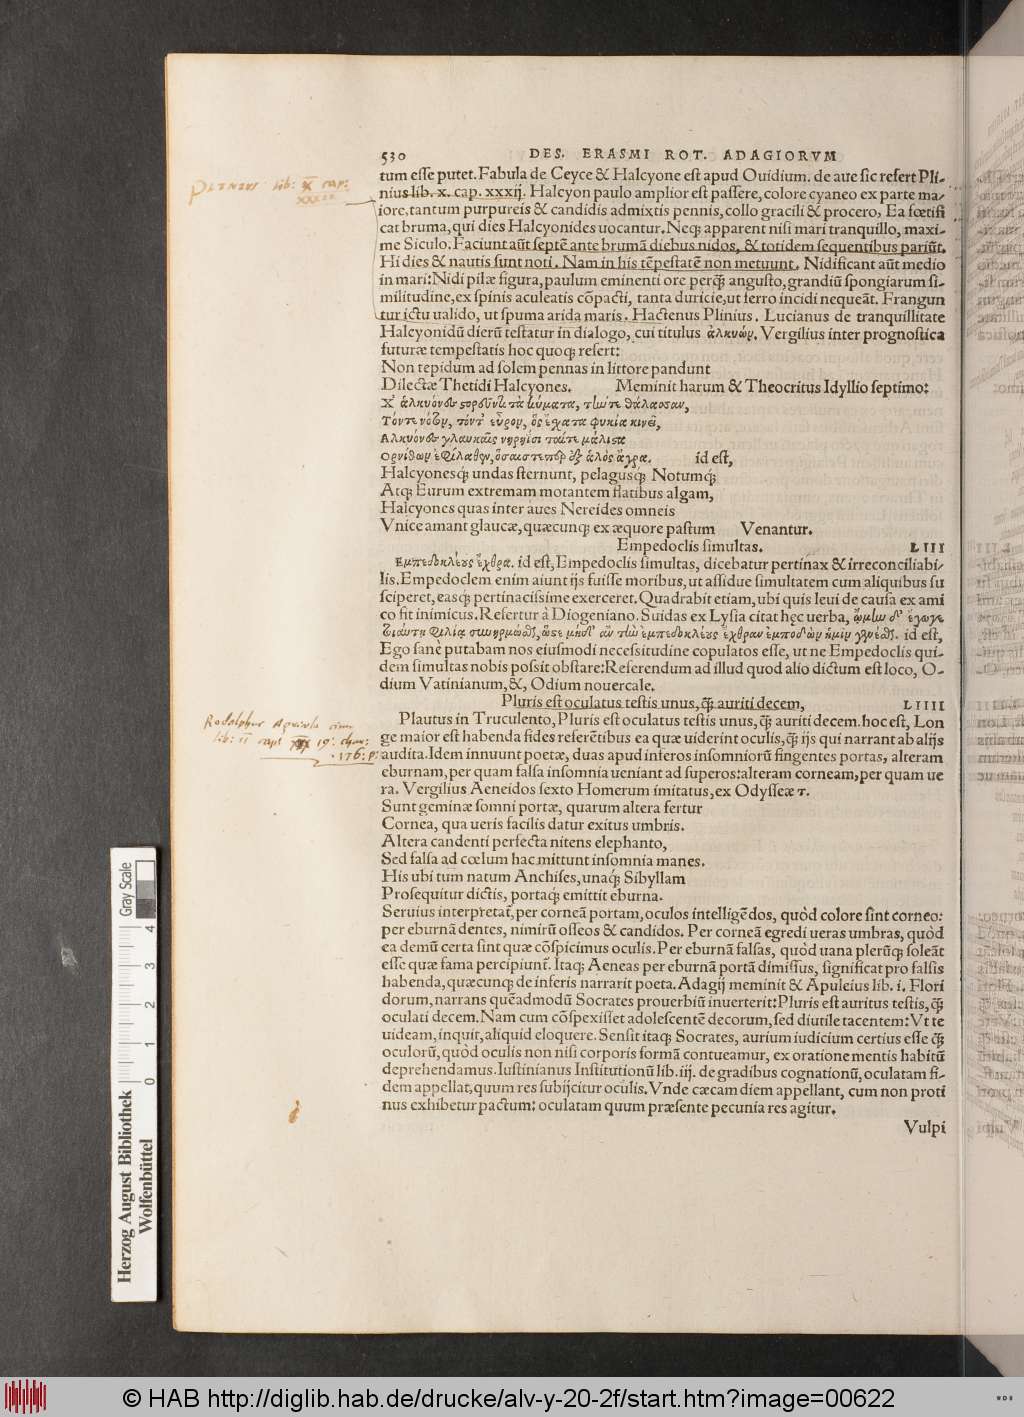 530 DES. ERASMI ROT. ADAGIORVM
tum eſſe putet. Fabula de Ceyce & Halcyone eſt apud Ouidium. de aue ſic refert Pli-
nius lib. x. cap. xxxij. Halcyon paulo amplior eſt paſſere, colore cyaneo ex parte ma-
iore, tantum purpureis & candidis admixtis pennis, collo gracili & procero, Ea fœtifi
cat bruma, qui dies Halcyonides uocantur. Neqꝫ apparent niſi mari tranquillo, maxi-
me Siculo. Faciunt aūt ſeptē ante brumā diebus nidos, & totidem ſequentibus pariūt.
Hi dies & nautis ſunt noti. Nam in his tēpeſtatē non metuunt. Nidificant aūt medio
in mari: Nidi pilæ figura, paulum eminenti ore perq̃ʒ anguſto, grandiū ſpongiarum ſi-
militudine, ex ſpinis aculeatis cōpacti, tanta duricie, ut ferro incidi nequeāt. Frangun
tur ictu ualido, ut ſpuma arida maris. Hactenus Plinius. Lucianus de tranquillitate
Halcyonidū dierū teſtatur in dialogo, cui titulus ἀλκυών. Vergilius inter prognoſtica
futuræ tempeſtatis hoc quoqꝫ refert:
Non tepidum ad ſolem pennas in littore pandunt
Dilectæ Thetidi Halcyones. Meminit harum & Theocritus Idyllio ſeptimo:
Χ' ἁλκυόνες στορεῦντι τὰ κύματα, τάν τε θάλασσαν,
Τόν τε νότον, τόν τ' εὖρον, ὃς ἔχατα φυκία κινεῖ,
Αλκυόνες γλαυκαῖς νηρηίσι ταί τε μάλιστα
Ορνίθων ἐφίλαθεν, ὅσαις τε περ ἐξ ἁλὸς ἄγρα. id eſt,
Halcyonesqꝫ undas ſternunt, pelagusqꝫ Notumqꝫ
Atqꝫ Eurum extremam motantem flatibus algam,
Halcyones quas inter aues Nereides omneis
Vnice amant glaucæ, quæcunqꝫ ex æquore paſtum Venantur.
Empedoclis ſimultas. LIII
Εμπεδοκλέους ἔχθρα. id eſt, Empedoclis ſimultas, dicebatur pertinax & irreconciliabi-
lis. Empedoclem enim aiunt ijs fuiſſe moribus, ut aſſidue ſimultatem cum aliquibus ſu
ſciperet, easqꝫ pertinaciſſime exerceret. Quadrabit etiam, ubi quis leui de cauſa ex ami
co fit inimicus. Refertur à Diogeniano. Suidas ex Lyſia citat hęc uerba, ᾤμην δ' ἔγωγε
τοιαύτῃ φιλίᾳ συνηρμόσθαι, ὥστε μηδ' ἂν τὴν ἐμπεδοκλέους ἔχθραν ἐμποδὼν ἡμῖν γενέσθαι. id eſt,
Ego ſanè putabam nos eiuſmodi neceſſitudine copulatos eſſe, ut ne Empedoclis qui-
dem ſimultas nobis poſsit obſtare: Referendum ad illud quod alio dictum eſt loco, O-
dium Vatinianum, &, Odium nouercale.
Pluris eſt oculatus teſtis unus, q̃ʒ auriti decem, LIIII
Plautus in Truculento, Pluris eſt oculatus teſtis unus, q̃ʒ auriti decem. hoc eſt, Lon
ge maior eſt habenda fides referētibus ea quæ uiderint oculis, q̃ʒ ijs qui narrant ab alijs
audita. Idem innuunt poetæ, duas apud inferos inſomniorū fingentes portas, alteram
eburnam, per quam falſa inſomnia ueniant ad ſuperos: alteram corneam, per quam ue
ra. Vergilius Aeneidos ſexto Homerum imitatus, ex Odyſſeæ τ.
Sunt geminæ ſomni portæ, quarum altera fertur
Cornea, qua ueris facilis datur exitus umbris.
Altera candenti perfecta nitens elephanto,
Sed falſa ad cœlum hac mittunt inſomnia manes.
His ubi tum natum Anchiſes, unaqꝫ Sibyllam
Proſequitur dictis, portaqꝫ emittit eburna.
Seruius interpretat̃, per corneā portam, oculos intelligēdos, quòd colore ſint corneo:
per eburnā dentes, nimirū oſſeos & candidos. Per corneā egredi ueras umbras, quòd
ea demū certa ſint quæ cōſpicimus oculis. Per eburnā falſas, quòd uana plerūqꝫ ſoleāt
eſſe quæ fama percipiunt̃. Itaqꝫ Aeneas per eburnā portā dimiſſus, ſignificat pro falſis
habenda, quæcunqꝫ de inferis narrarit poeta. Adagij meminit & Apuleius lib. i. Flori
dorum, narrans quēadmodū Socrates prouerbiū inuerterit: Pluris eſt auritus teſtis, q̃ʒ
oculati decem. Nam cum cōſpexiſſet adoleſcentē decorum, ſed diutile tacentem: Vt te
uideam, inquit, aliquid eloquere. Senſit itaqꝫ Socrates, aurium iudicium certius eſſe q̃ʒ
oculorū, quòd oculis non niſi corporis formā contueamur, ex oratione mentis habitū
deprehendamus. Iuſtinianus Inſtitutionū lib. iij. de gradibus cognationū, oculatam fi-
dem appellat, quum res ſubijcitur oculis. Vnde cæcam diem appellant, cum non proti
nus exhibetur pactum: oculatam quum præſente pecunia res agitur.
Vulpi
Plinius lib: X cap:
xxxii
Rodolphus Agricola
lib: II cap: 19:
176: p:
Gray Scale
0 1 2 3 4
Herzog August Bibliothek
Wolfenbüttel
© HAB http://diglib.hab.de/drucke/alv-y-20-2f/start.htm?image=00622